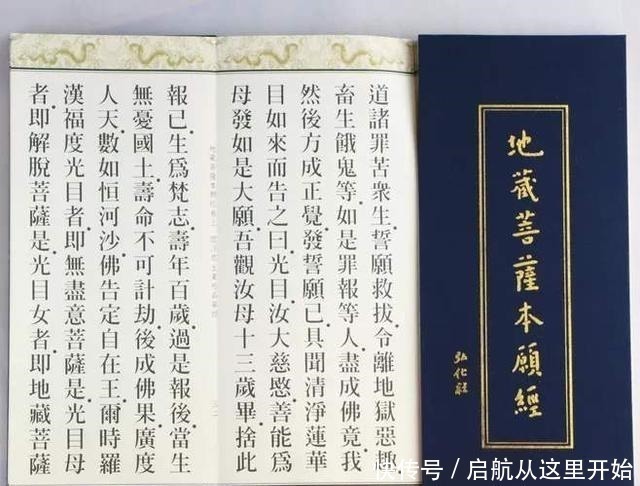 地藏菩薩本願經
弘化社
道諸罪苦衆生誓願救拔令離地獄惡趣
畜生餓鬼等如是罪報等人盡成佛竟我
然後方成正覺發誓願已具聞清淨蓮華
目如來而告之曰光目汝大慈愍善能爲
母發如是大願吾觀汝母十三歲畢捨此
報已生爲梵志壽年百歲過是報後當生
無憂國土壽命不可計劫後成佛果廣度
人天數如恒河沙佛告定自在王爾時羅
漢福度光目者即無盡意菩薩是光目母
者即解脫菩薩是光目女者即地藏菩薩
快传号 / 启航从这里开始